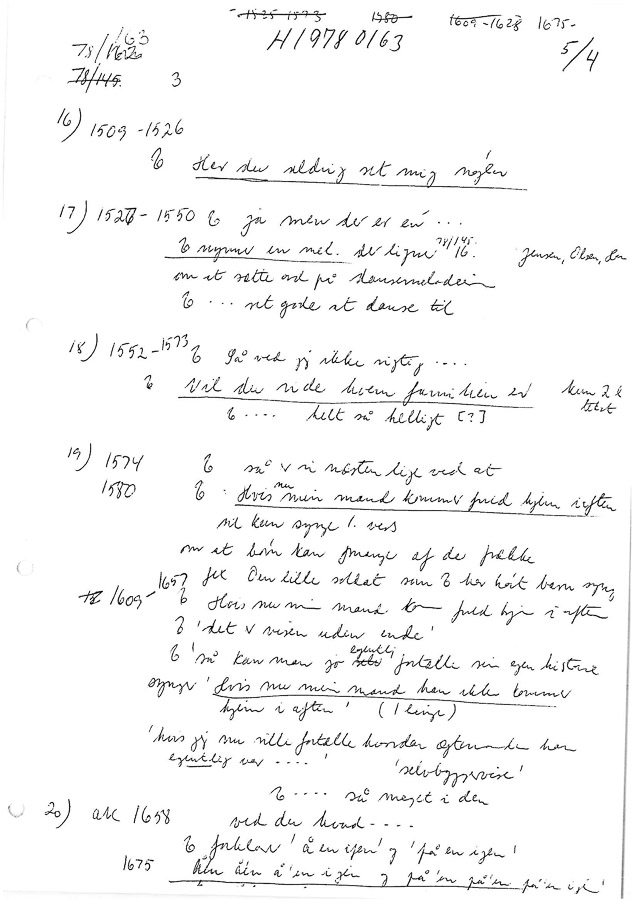 1525-1573 1580 1609-1628 1675-
H1978 0163
5/4
163
78/1626
78/145. 3
16) 1509-1526
Har du aldrig set mig nøgen
17) 1527-1550 ja men der er en ...
nynner en mel. der ligner 78/145. 16. Jensen, Olsen,
om at sætte ord på dansemelodien
... set gode at danse til
18) 1552-1573 Så ved jeg ikke rigtig ....
Vil du vide hvem familien er kun 2 l
tekst
.... helt så helligt [?]
19) 1574 så v vi næsten lige ved at
1580 Hvis nu min mand kommer fuld hjem i aften
vil kun synge 1. vers
om at børn kan mange af de frække
1609-1657 fex Den lille soldat som har hørt børn synge
Hvis nu min mand kom fuld hjem i aften
'det v visen uden ende'
'så kan man jo egentlig fortælle sin egen historie
synger 'Hvis nu min mand han ikke kommer
hjem i aften' (1 linje)
'hvis jeg nu ville fortælle hvordan eftermanden han
egentlig var ....' 'selvbyggervise'
.... så meget i den
20) ark 1658 ved du hvad ....
forklarer 'å en igen' og 'på en igen'
1675 å'en i gen og på'en på'en på'en igen'